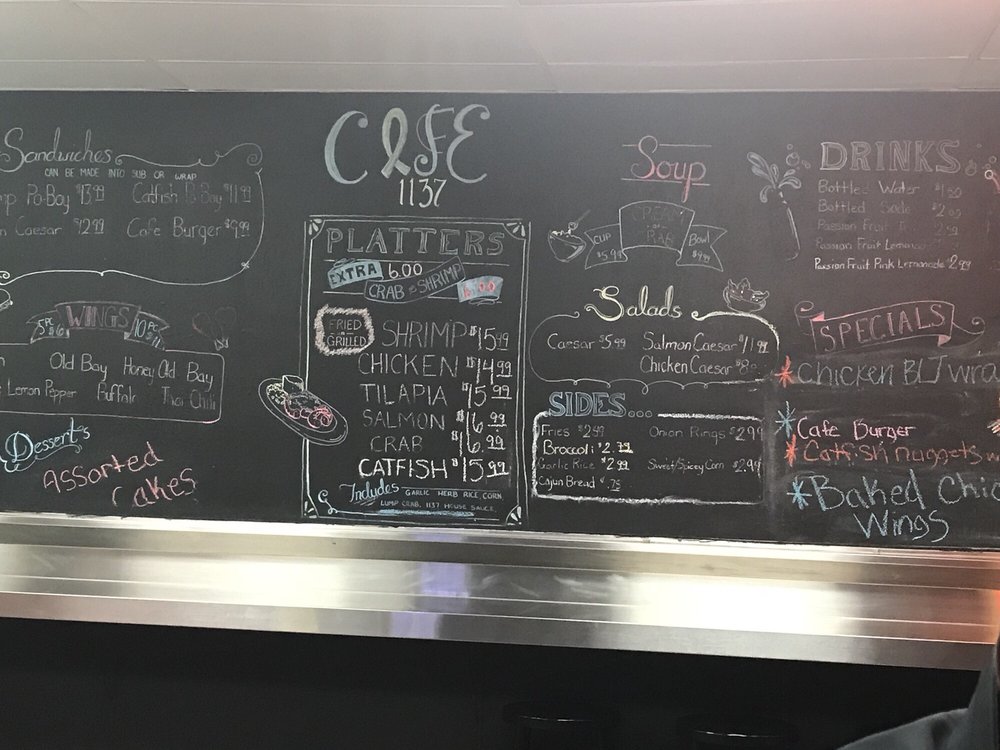 Sandwiches
CAN BE MADE INTO SUB OR WRAP
Po-Boy $13.99 Catfish Po Boy $11.99
Caesar $12.99 Cafe Burger $9.99
WINGS
5PC $6 10PC $11
Old Bay Honey Old Bay
Lemon Pepper Buffalo Thai Chili
Desserts
Assorted Cakes
CAFE
1137
PLATTERS
EXTRA 6.00
CRAB & SHRIMP
FRIED OR GRILLED
SHRIMP $15.99
CHICKEN $14.99
TILAPIA $15.99
SALMON $16.99
CRAB $16.99
CATFISH $15.99
Includes GARLIC HERB RICE, CORN
LUMP CRAB, 1137 HOUSE SAUCE
Soup
CREAM OF CRAB
CUP $5.99 Bowl $9.99
Salads
Caesar $5.99 Salmon Caesar $11.99
Chicken Caesar
SIDES...
Fries Onion Rings $2.99
Broccoli $2.79
Garlic Rice $2.99 Sweet/Spicy Corn $2.99
Cajun Bread $.75
DRINKS
Bottled Water
Bottled Soda
Passion Fruit
Passion Fruit Lemonade
Passion Fruit Pink Lemonade 2.99
SPECIALS
*Chicken BLT
*Cafe Burger
*Catfish nuggets
*Baked
Wings